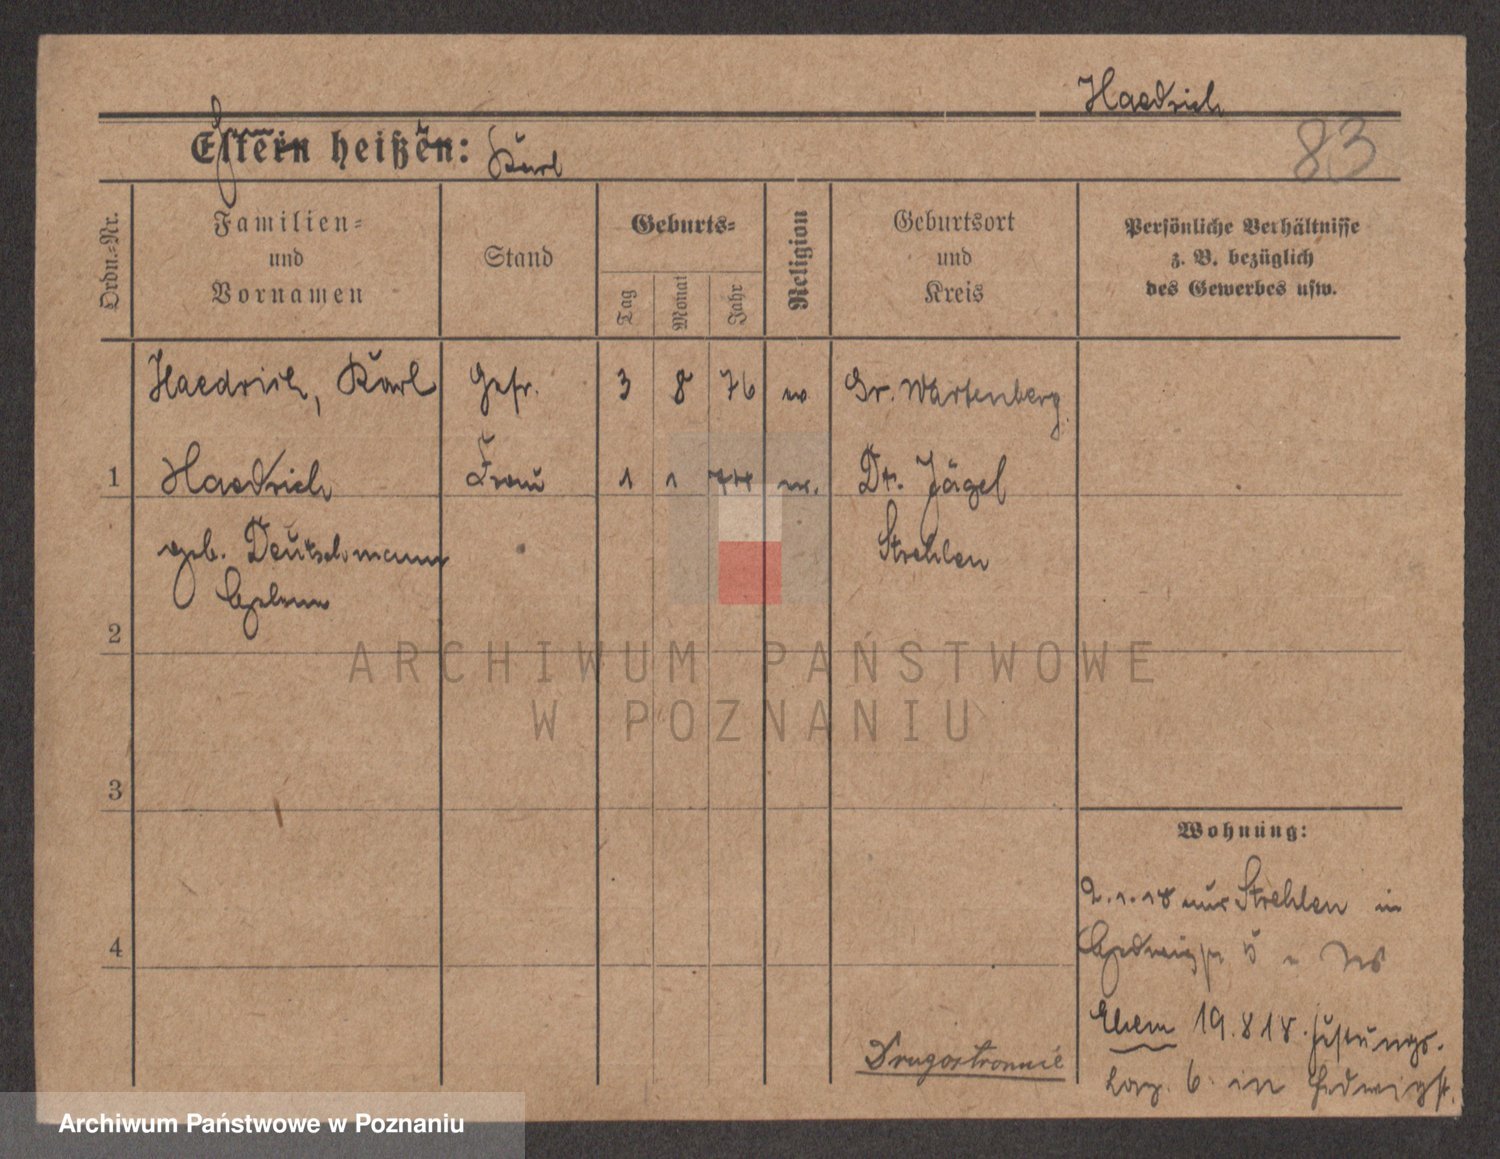 Haedrich
83
Eltern heißen: Karl
Ordn.-Nr.
Familien-
und
Vornamen
Stand
Geburts-
Tag
Monat
Jahr
Religion
Geburtsort
und
Kreis
Persönliche Verhältnisse
z. B. bezüglich
des Gewerbes usw.
Haedrich, Karl Gefr. 3 8 76 ev. Gr. Wartenberg
1 Haedrich Frau 1 1 Dt. Jägel
geb. Deutschmann Strehlen
2
3
4
Wohnung:
2.1.18 aus Strehlen in
Ehem 19.8 18. Festungs-
Laz. 6. in Hedwigst.
Drugostronnie
ARCHIWUM PAŃSTWOWE
W POZNANIU
Archiwum Państwowe w Poznaniu